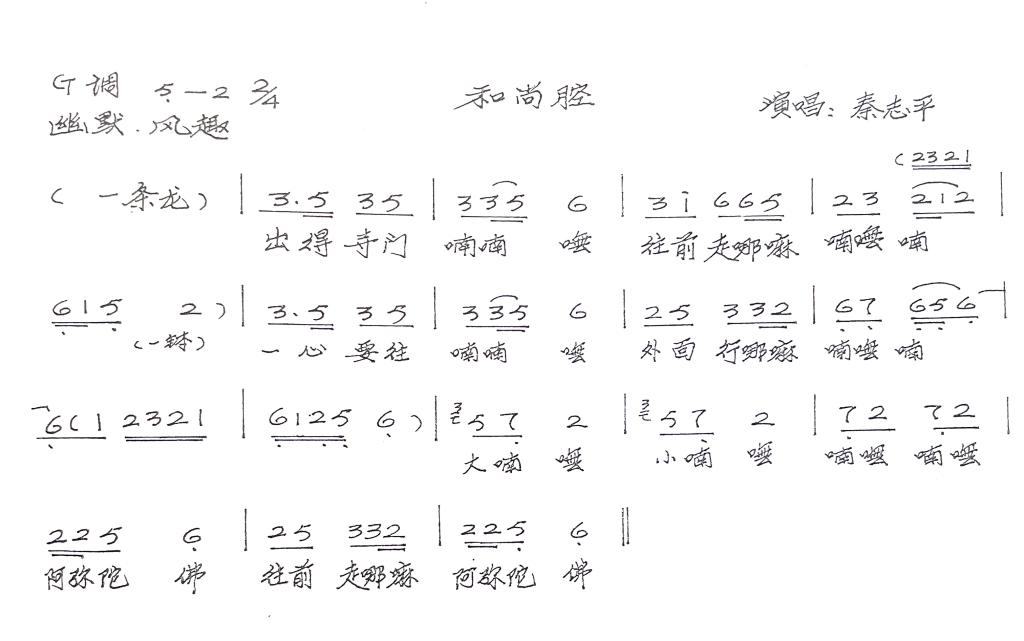 G调 5—2 2/4 和尚腔
幽默.风趣 演唱：秦志平
(2321
(一条龙) | 3.5 35 | 335 6 | 3i 665 | 23 212 |
出得 寺门 喃喃 嘸 往前 走哪嘛 喃嘸 喃
615 2) | 3.5 35 | 335 6 | 25 332 | 67 656 |
(一球) 一心 要往 喃喃 嘸 外面 行哪嘛 喃嘸 喃
6(1 2321 | 6125 6) | 57 2 | 57 2 | 72 72 |
大喃 嘸 小喃 嘸 喃嘸 喃嘸
225 6 | 25 332 | 225 6 ‖
阿弥陀 佛 往前 走哪嘛 阿弥陀 佛